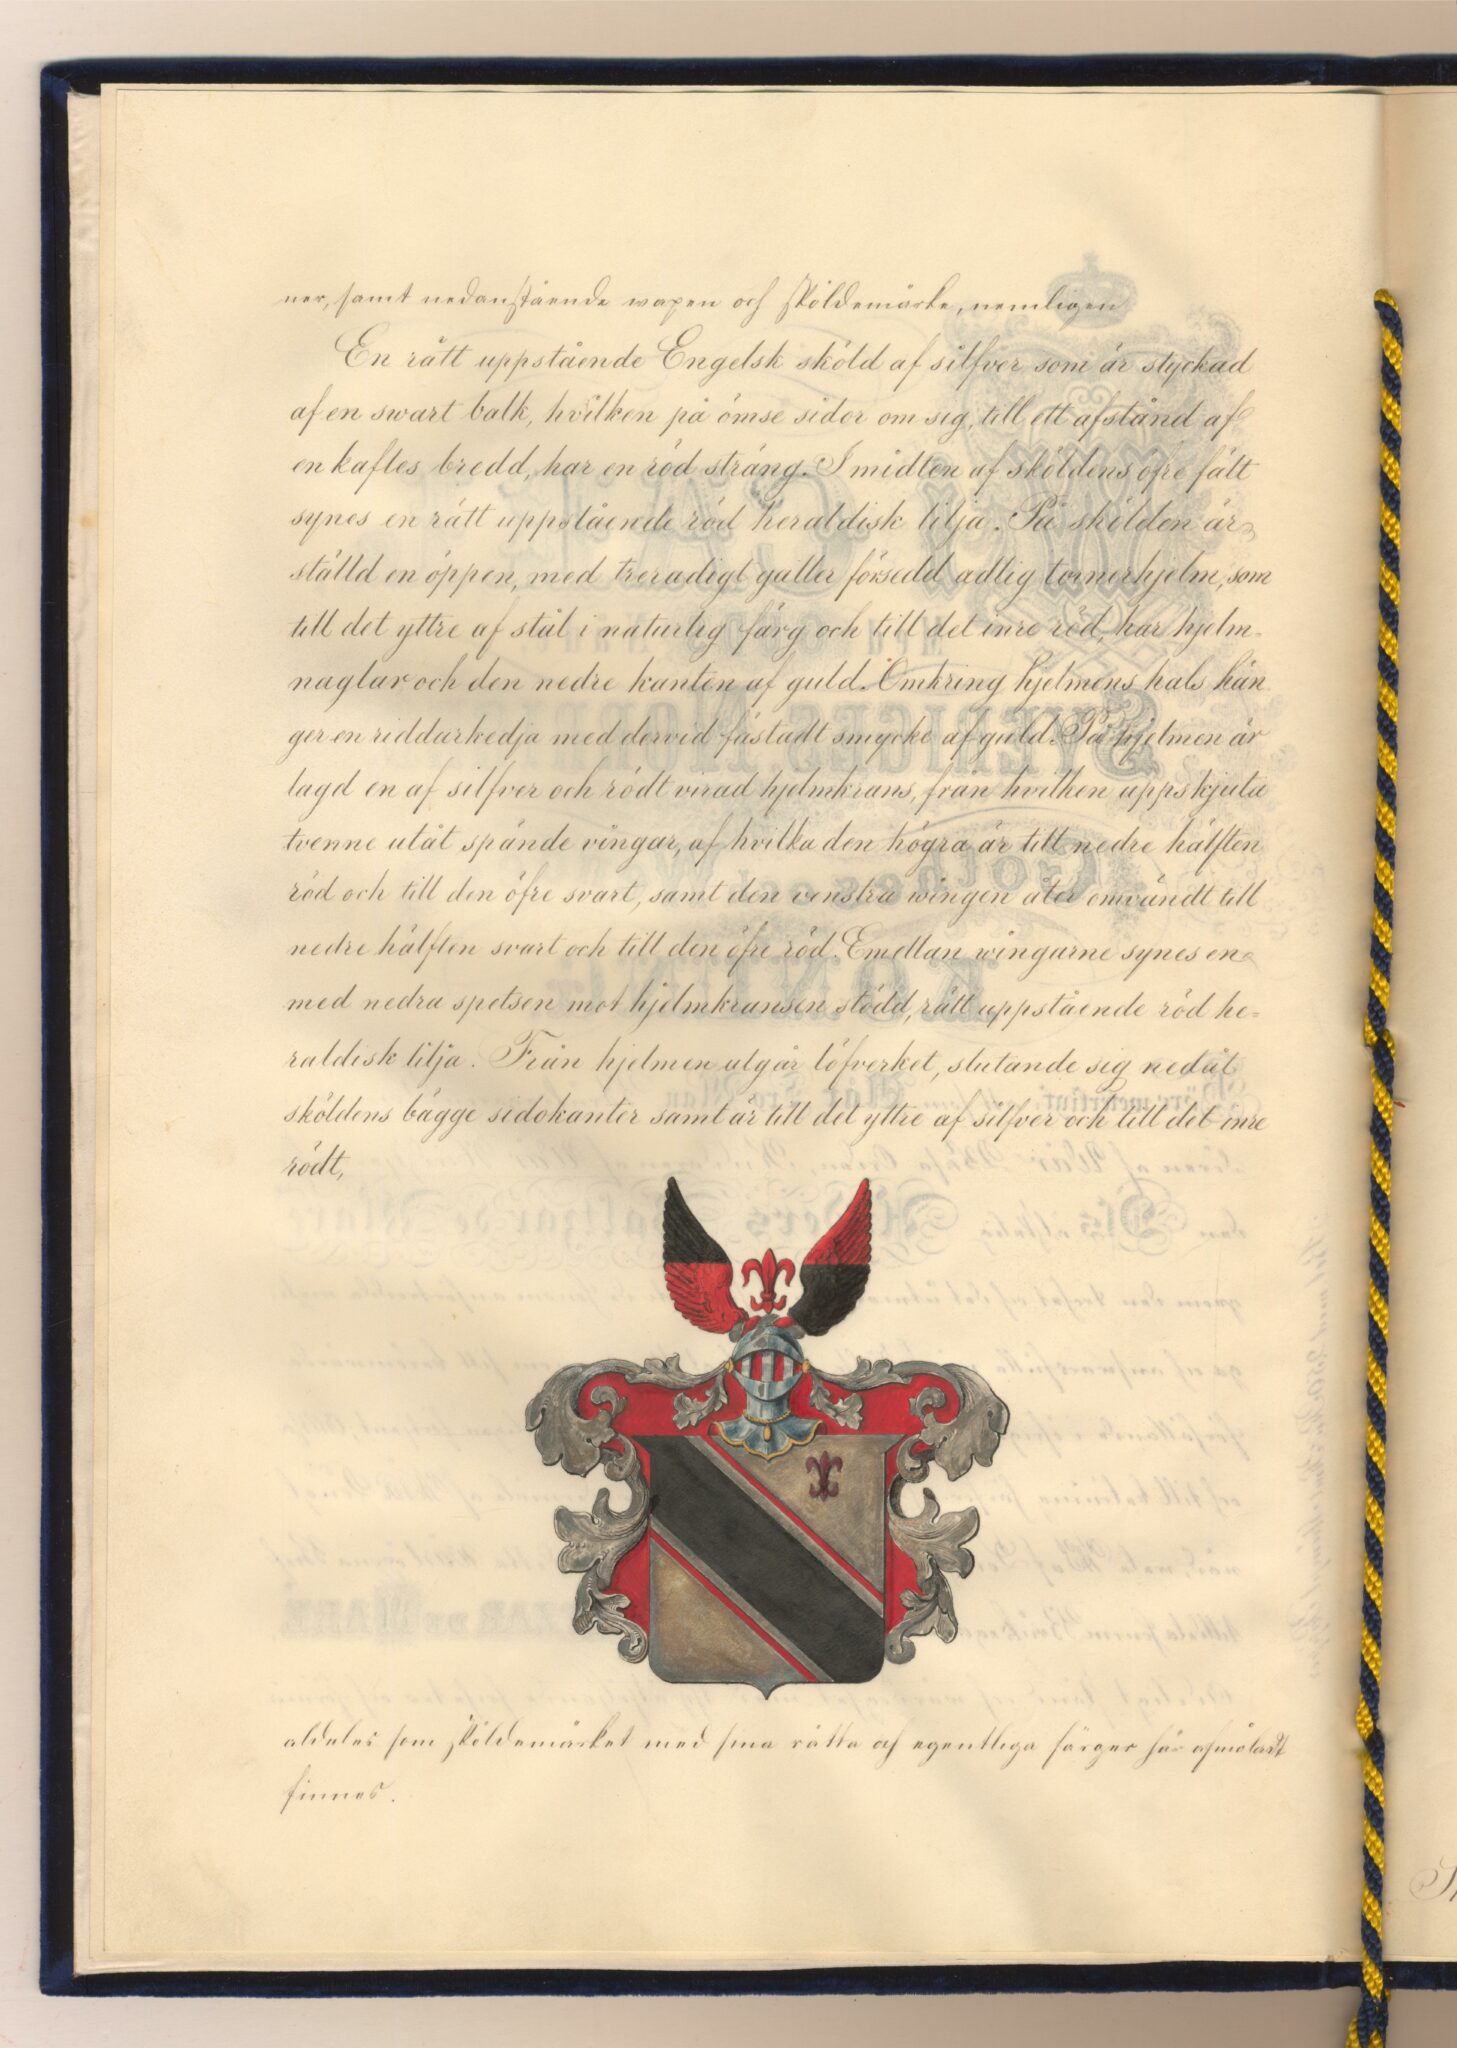 ner, samt nedanstående wapen och sköldemärke, nemligen
En rätt uppstående Engelsk sköld af silfver som är styckad
af en swart balk, hvilken på ömse sidor om sig, till ett afstånd af
en kaftes bredd, har en röd sträng. I midten af sköldens öfre fält
synes en rätt uppstående röd heraldisk lilja. På skölden är
ställd en öppen, med treradigt galler försedd adlig tornerhjelm, som
till det yttre af stål i naturlig färg och till det inre röd, har hjelm-
naglar och den nedre kanten af guld. Omkring hjelmens hals hän
ger en riddarkedja med dervid fästadt smycke af guld. På hjelmen är
lagd en af silfver och rödt virad hjelmkrans, från hvilken uppskjuta
tvenne utåt spände vingar, af hvilka den högra är till nedre hälften
röd och till den öfre svart, samt den venstra wingen åter omvändt till
nedre hälften svart och till den öfre röd. Emellan wingarne synes en
med nedra spetsen mot hjelmkransen stödd, rätt uppstående röd he-
raldisk lilja. Från hjelmen utgår löfverket, slutande sig nedåt
sköldens bägge sidokanter samt är till det yttre af silfver och till det inre
rödt,
aldeles som sköldemärket med sina rätta och egentliga färger här afmåladt
finnes.